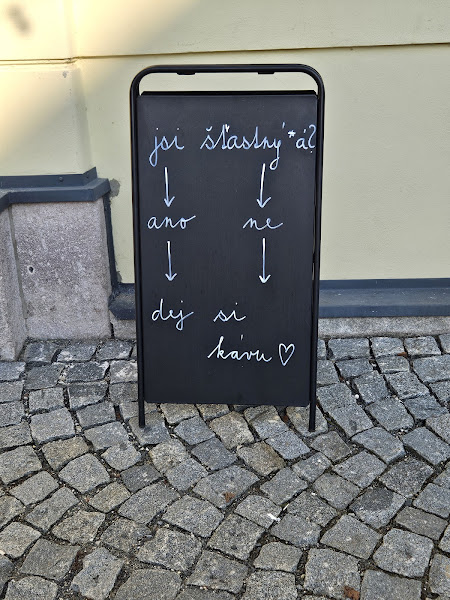 jsi šťastný*á?
ano ne
dej si
kávu